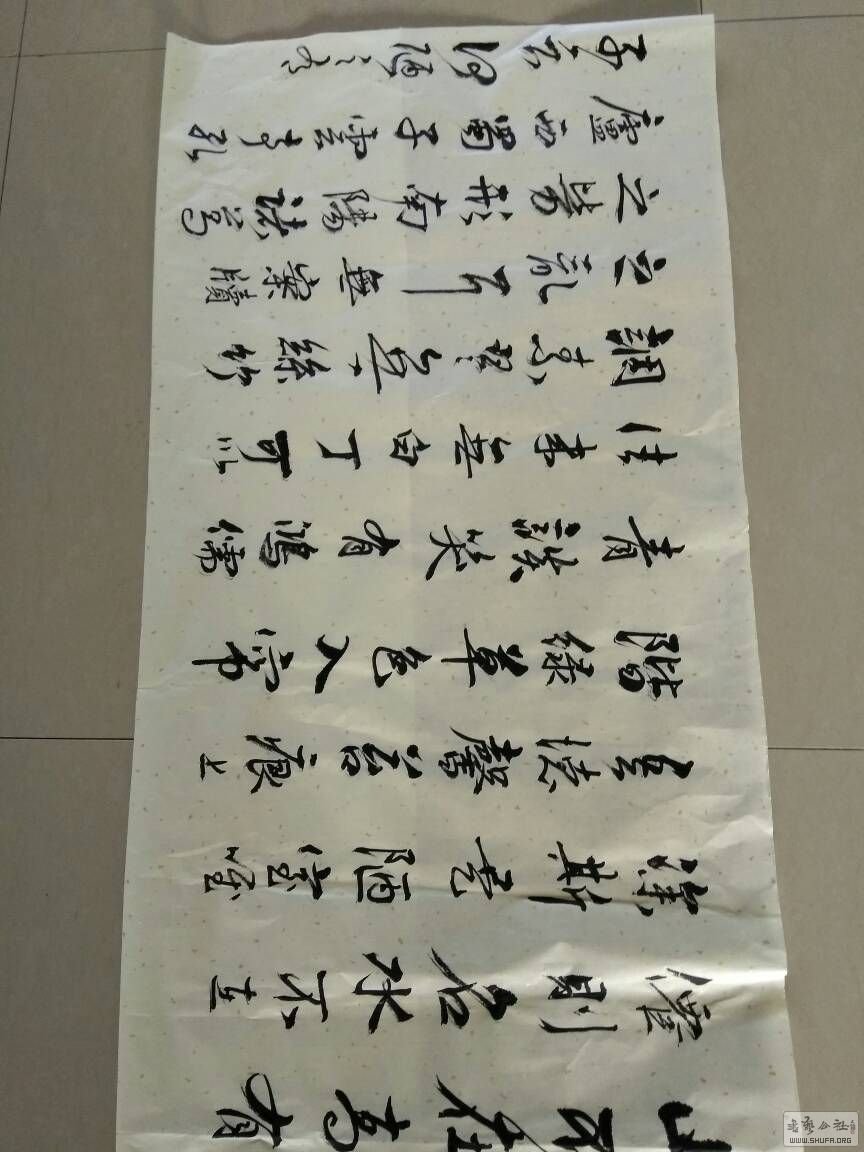 山不在高有
僊則名水不在
深斯是陋室唯
吾德馨苔痕上
階綠草色入帘
青談笑有鴻儒
往來無白丁可以
調素琴無絲竹
之亂耳無案牘
之勞形南陽諸葛
廬西蜀子雲亭孔
子云何陋之有
书法公社
WWW.SHUFA.ORG